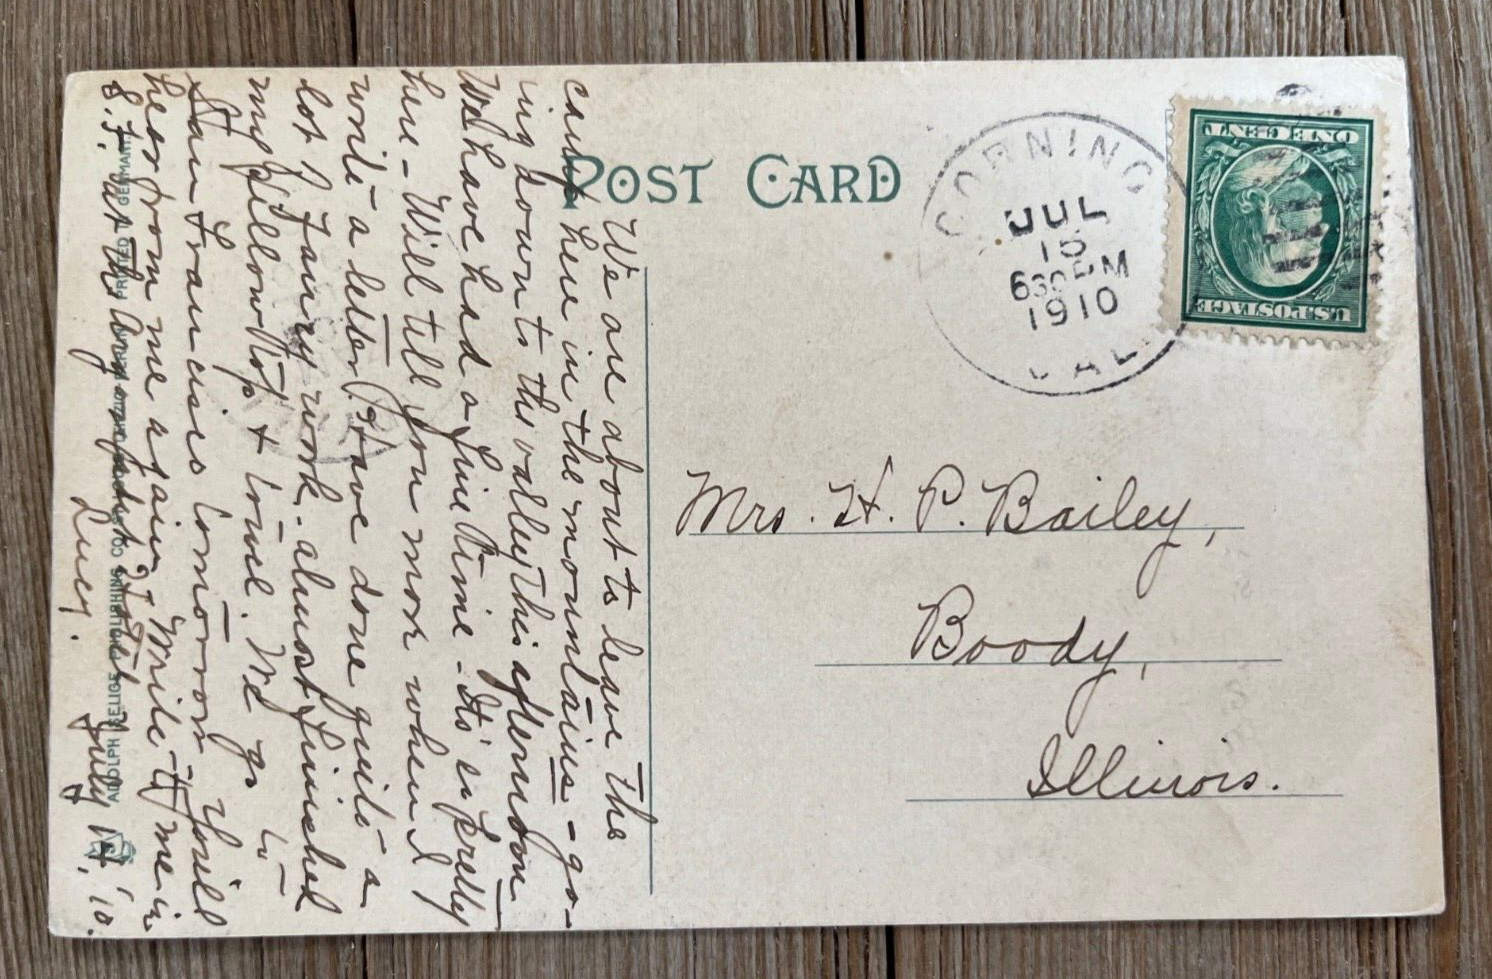 POST CARD
CORNING
JUL
15
630 PM
1910
CAL.
ONE CENT
U.S. POSTAGE
Mrs. H. P. Bailey,
Boody,
Illinois.
We are about to leave the
camp here in the mountains - go-
ing down to the valley this afternoon
We have had a fine time - It's so pretty
here - Will tell you more when I
write a letter. Have done quite a
lot of fancy work. almost finished
my pillow top & towel. We go to
San Francisco tomorrow. You'll
hear from me again. Write to me in
S.F. at the
Lucy.
July 14, '10.
ADOLPH SELIGE PUBLISHING CO. ST. LOUIS
PRINTED IN GERMANY